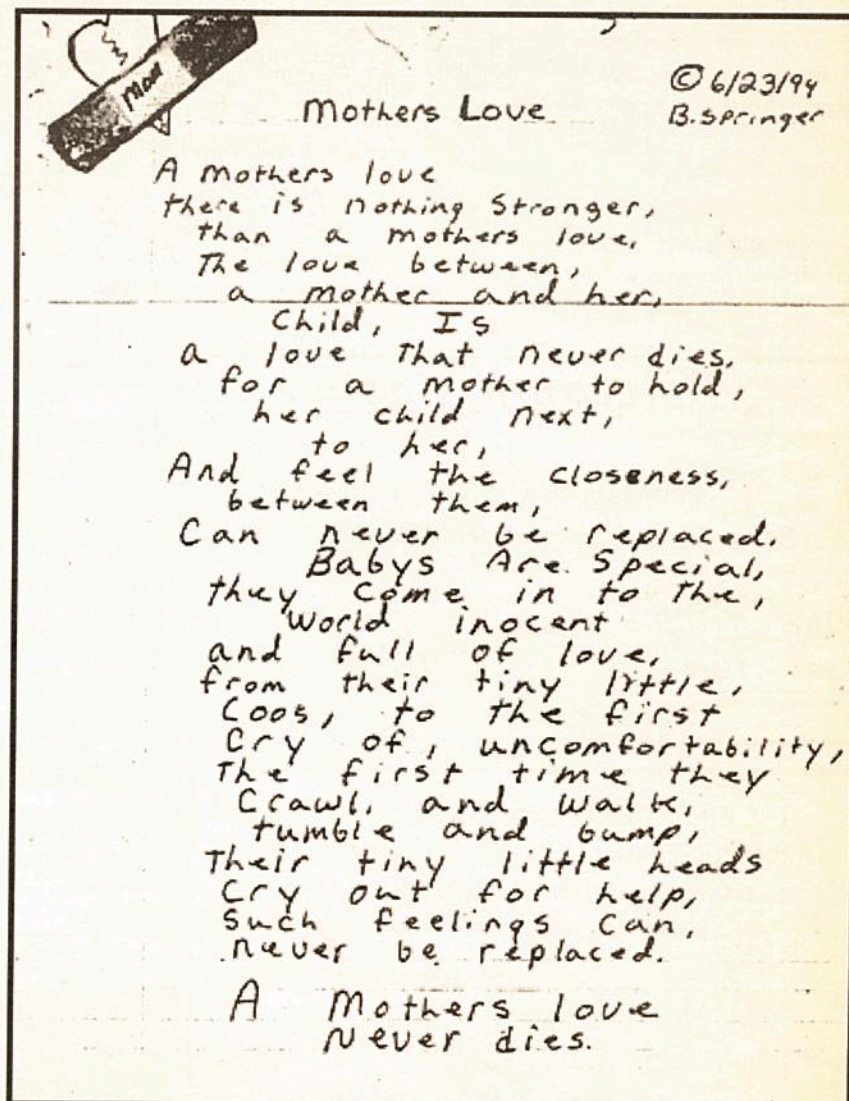 Mom
© 6/23/94
Mothers Love
B. Springer
A mothers love
there is nothing Stronger,
than a mothers love,
The love between,
a mother and her,
Child, Is
a love That never dies.
for a mother to hold,
her child next,
to her,
And feel the closeness,
between them,
Can never be replaced.
Babys Are Special,
they Come in to the,
World inocent
and full of love,
from their tiny little,
Coos, to the first
Cry of, uncomfortability,
The first time they
Crawl, and Walk,
tumble and bump,
Their tiny little heads
Cry out for help,
Such feelings Can,
never be replaced.
A Mothers love
Never dies.